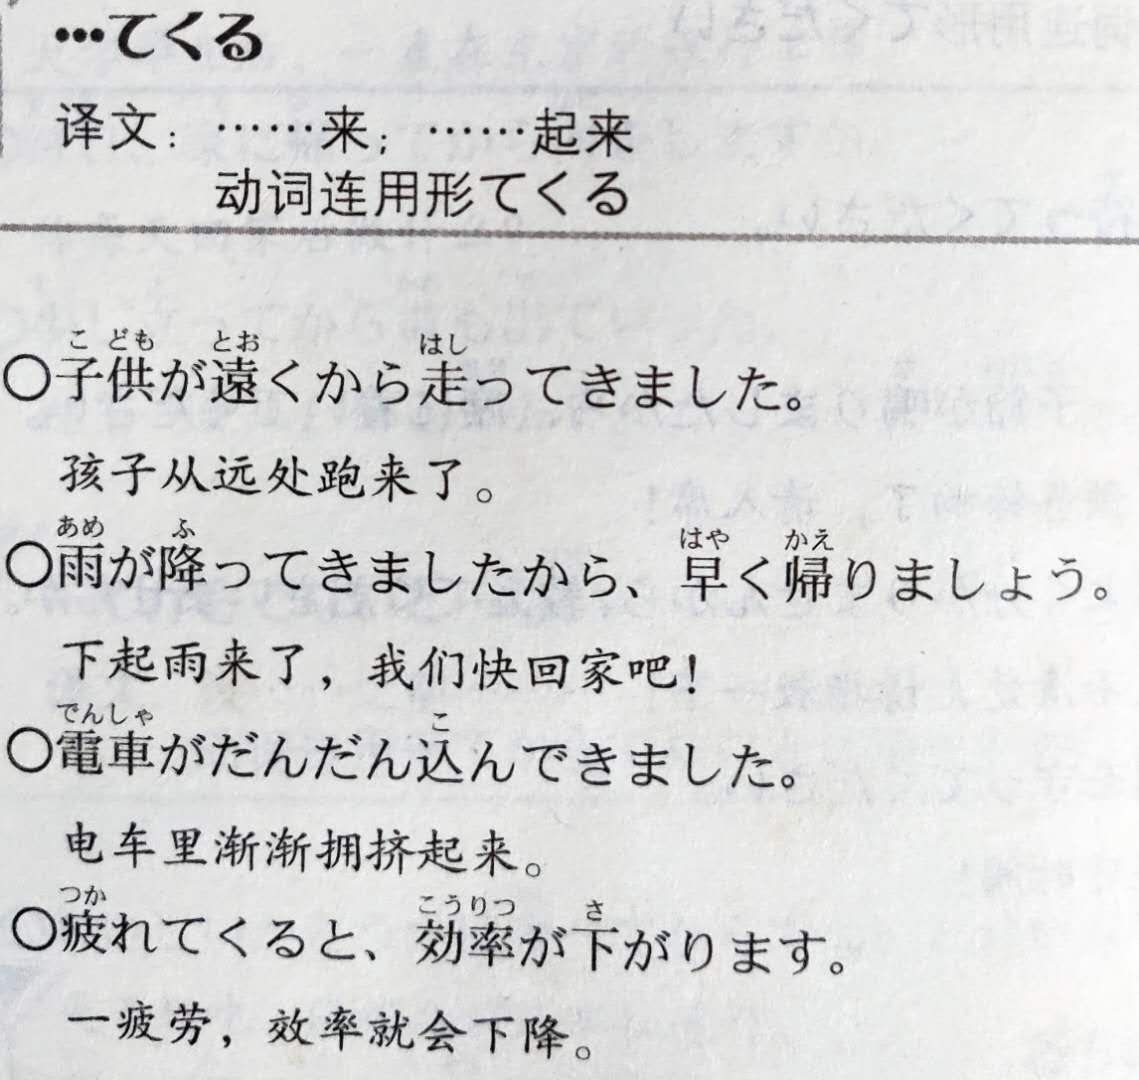 …てくる
译文：……来；……起来
动词连用形てくる
こ ども とお はし
○子供が遠くから走ってきました。
孩子从远处跑来了。
あめ ふ はや かえ
○雨が降ってきましたから、早く帰りましょう。
下起雨来了，我们快回家吧！
でんしゃ こ
○電車がだんだん込んできました。
电车里渐渐拥挤起来。
つか こうりつ さ
○疲れてくると、効率が下がります。
一疲劳，效率就会下降。